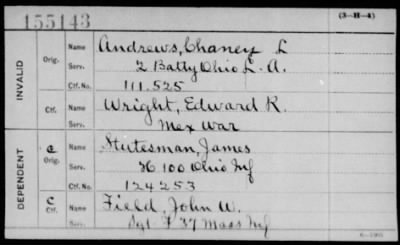 155143
(3-H-4)
INVALID
Orig. Name Andrews, Chaney L
Serv. 2 Batty Ohio L. A.
Ctf. No. 111.525
Ctf. Name Wright, Edward K.
Serv. Mex War
DEPENDENT
C Orig. Name Stutesman, James
Serv. H 100 Ohio Inf
Ctf. No. 124253
C Ctf. Name Field, John W.
Serv. Sgt. F 37 Mass Inf